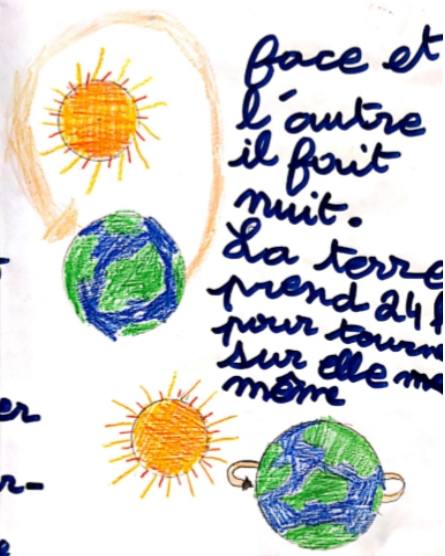 face et
l'autre
il fait
nuit.
La terre
prend 24
pour tourn
sur elle me
même
er
r-